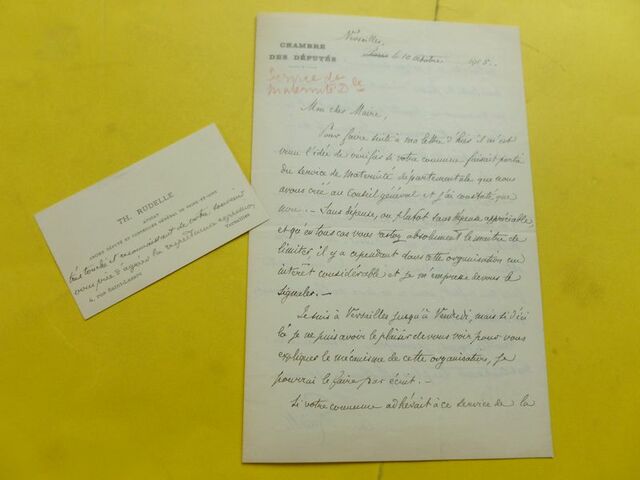 CHAMBRE
DES DÉPUTÉS
Service de
maternité Dle
Versailles,
Paris le 10 octobre 1915.
Mon cher Maire,
Pour faire suite à ma lettre d'hier il m'est
venu l'idée de vérifier si votre commune faisait partie
du service de Maternité départementale que nous
avons créé au Conseil général et j'ai constaté que
non. - Sans dépense, ou plutot sans dépense appréciable
et qu'en tous cas vous restez absolument le maître de
limiter, il y a cependant dans cette organisation un
intérêt considérable et je m'empresse de vous le
signaler. -
Je suis à Versailles jusqu'à Vendredi, mais si d'ici
là je ne puis avoir le plaisir de vous voir pour vous
expliquer le mécanisme de cette organisation, je
pourrai le faire par écrit. -
Si votre commune adhérait à ce service de la
TH. RUDELLE
AVOCAT
ANCIEN DÉPUTÉ ET CONSEILLER GÉNÉRAL DE SEINE-ET-OISE
très touché et reconnaissant de votre souvenir
vous prie d'agréer la respectueuse expression
4, RUE SAINT-LAMBERT
VERSAILLES